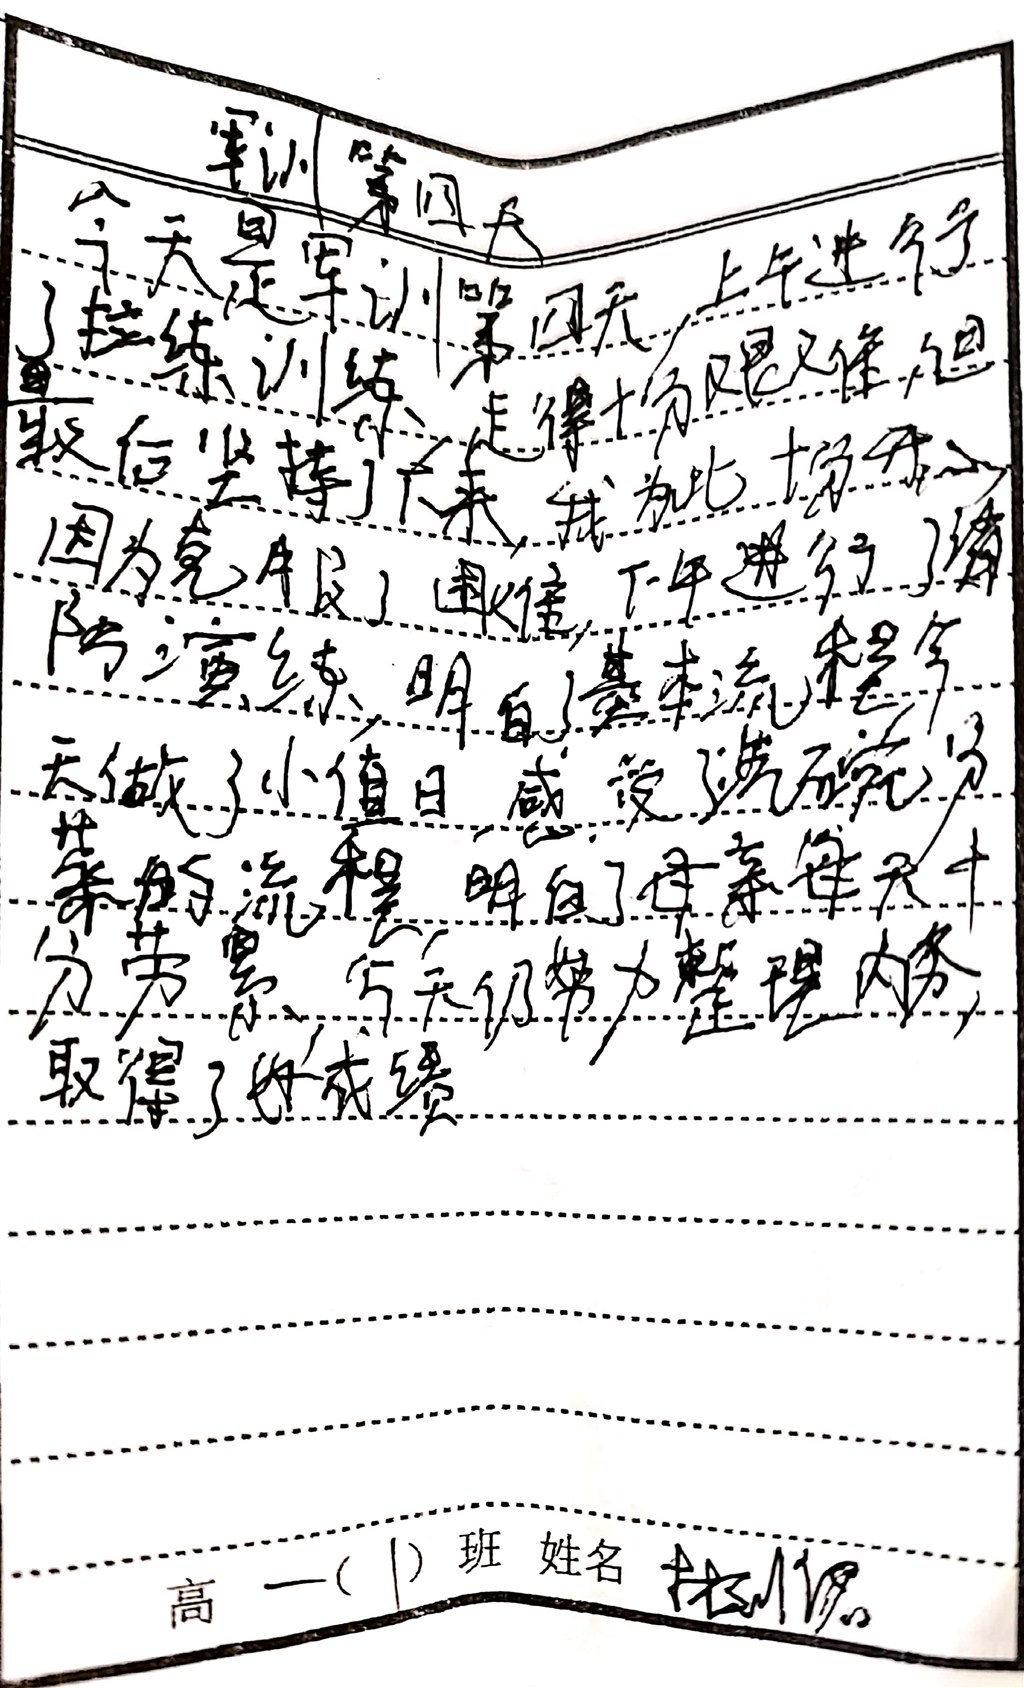 军训第四天
今天是军训第四天,上午进行
了拉练训练,走得十分艰难,但
最后坚持了下来,我为此十分开心
因为克服了困难,下午进行了消
防演练,明白了基本流程今
天做了小值日,感受了洗碗分
菜的流程,明白了母亲每天十
分劳累,今天仍努力整理内务,
取得了好成绩
高一(1)班 姓名